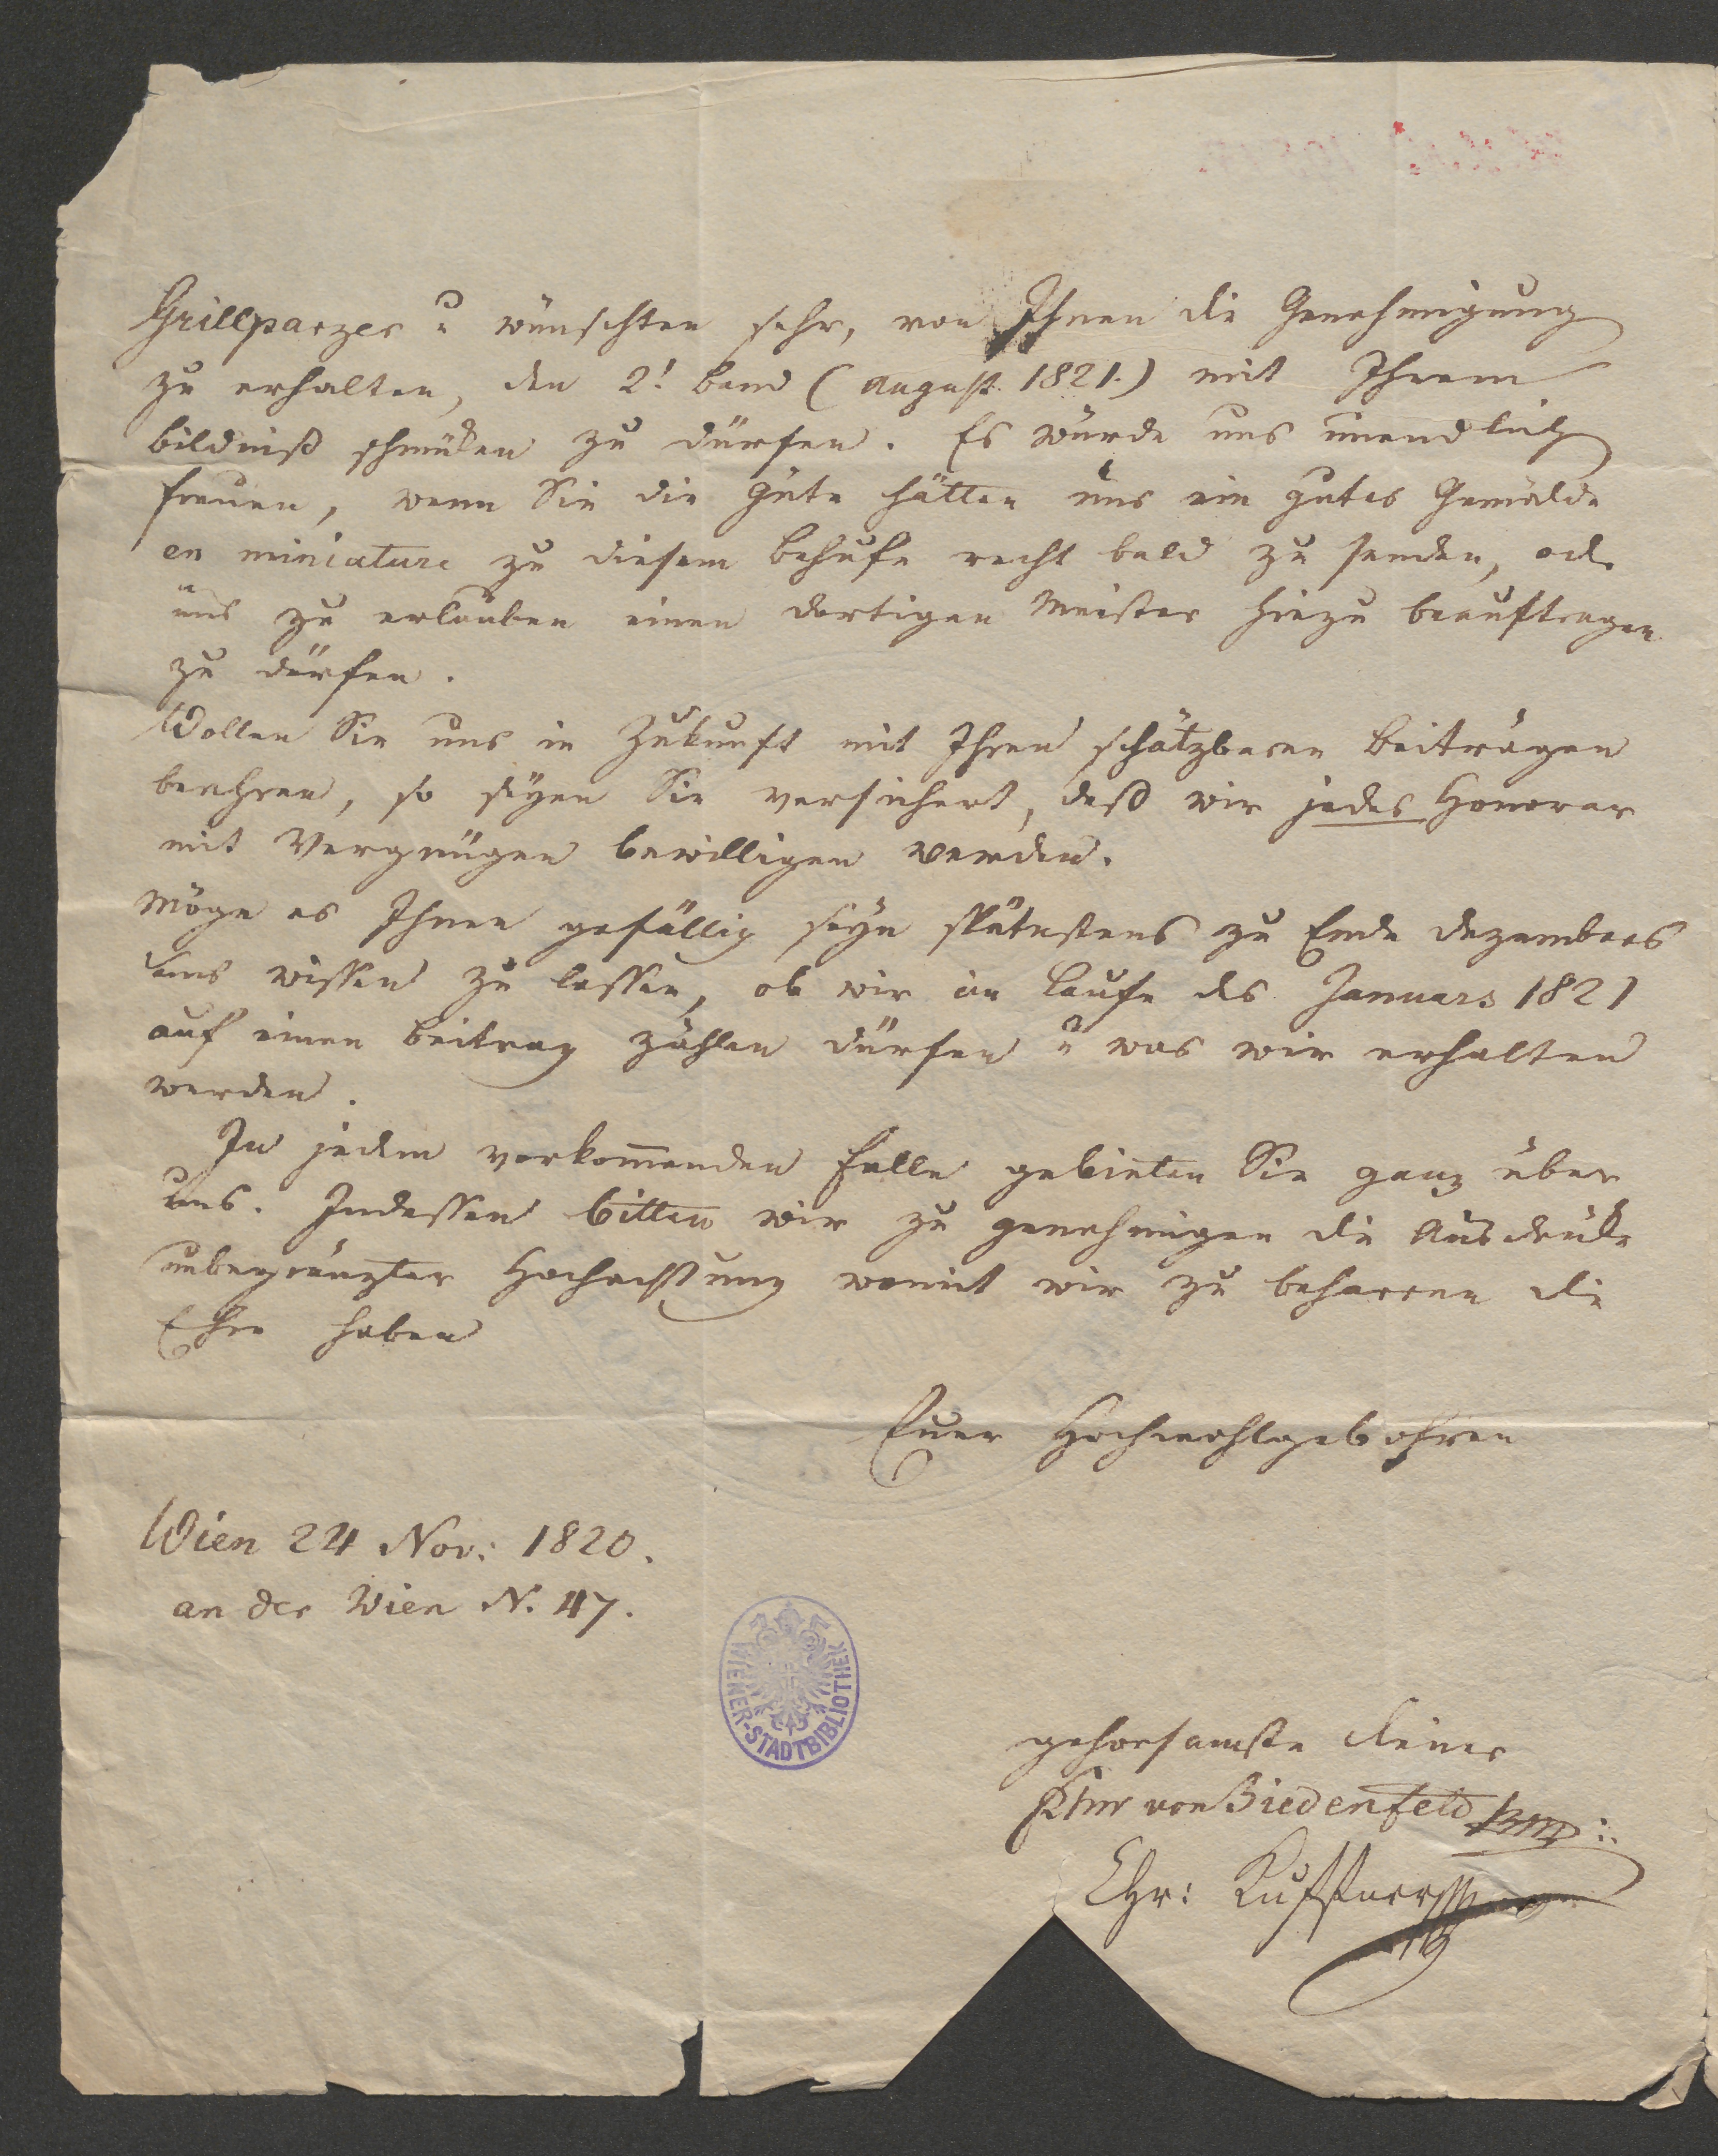 Grillparzer u wünschten sehr, von Ihnen die Genehmigung
zu erhalten, den 2t Band (August 1821.) mit Ihrem
Bildniß schmüken zu dürfen. Es würde uns unendlich
freuen, wenn Sie die Güte hätten uns ein gutes Gemälde
en miniature zu diesem Behufe recht bald zu senden, od.
uns zu erlauben einen dortigen Meister hiezu beauftragen
zu dürfen.
Wollen Sie uns in Zukunft mit Ihren schätzbaren Beiträgen
beehren, so seyen Sie versichert, daß wir jedes Honorar
mit Vergnügen bewilligen werden.
Möge es Ihnen gefällig seyn spätestens zu Ende Dezembers
uns wissen zu lassen, ob wir im Laufe des Januars 1821
auf einen Beitrag zählen dürfen u was wir erhalten
werden.
In jedem vorkom̅enden Falle gebieten Sie ganz über
uns. Indessen bitten wir zu genehmigen die Ausdrüke
unbegränzter Hochachtung womit wir zu beharren die
Ehre haben
Euer Hochwohlgebohren
Wien 24 Nov: 1820.
an der Wien N. 47.
WIENER-STADTBIBLIOTHEK
gehorsamste Diener
von Biedenfeld
Chr: Kuffner